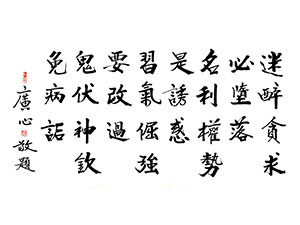 迷醉貪求
必墮落
名利權勢
是誘惑
習氣倔強
要改過
鬼伏神欽
免病詬
廣心敬題